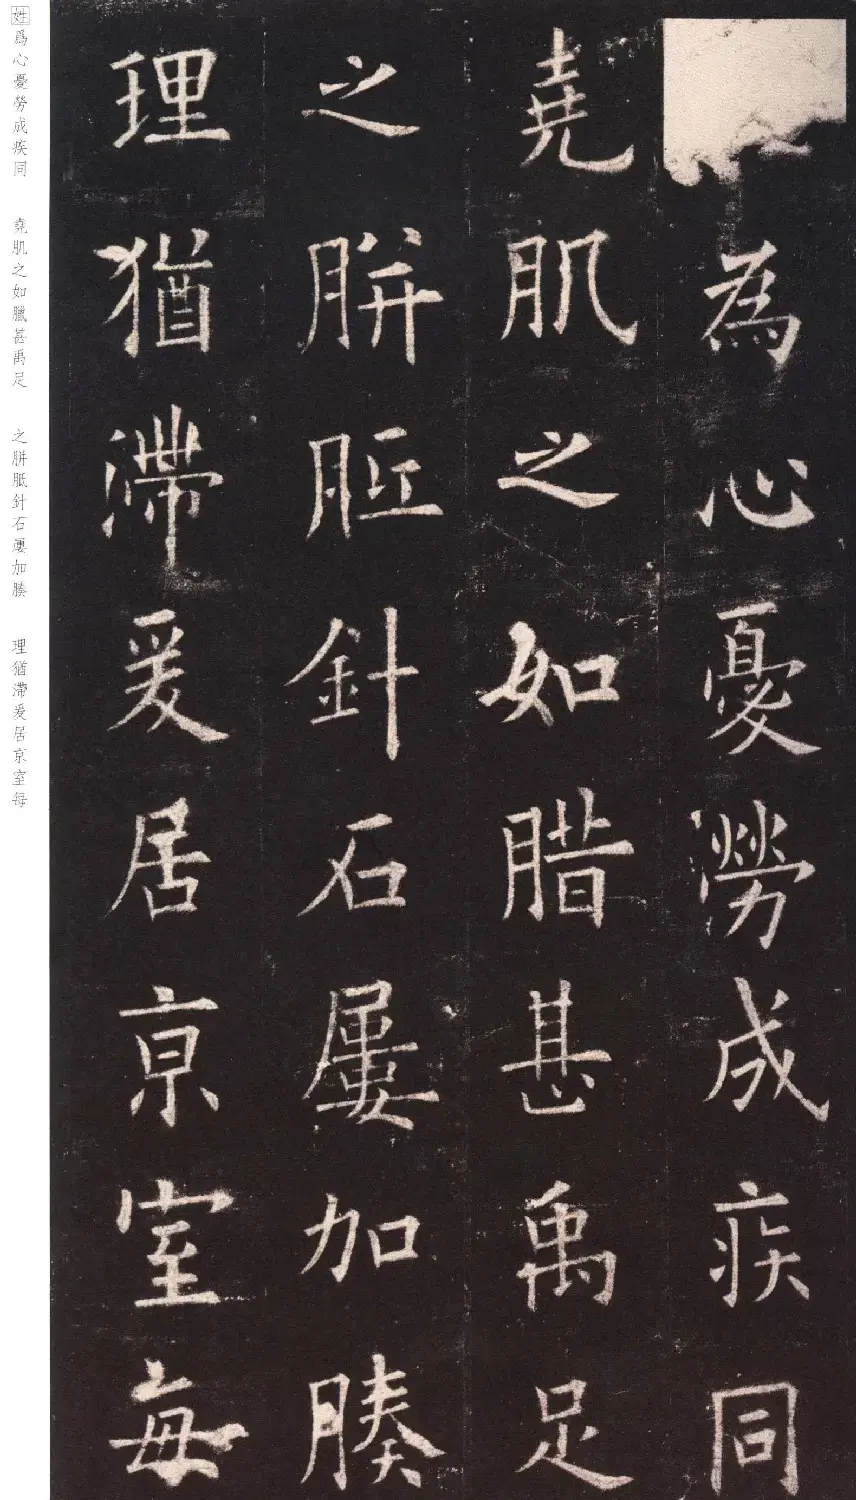 為心憂勞成疾同
堯肌之如腊甚禹足
之胼胝針石屢加腠
理猶滯爰居京室每
姓爲心憂勞成疾同 堯肌之如臘甚禹足 之胼胝針石屢加腠 理猶滯爰居京室每